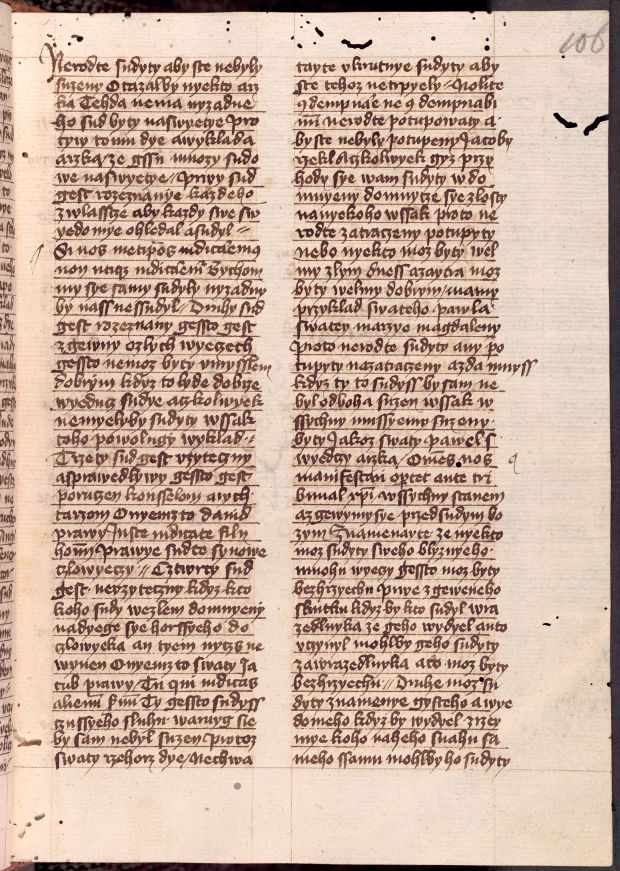 106
Nerodte sudyty aby ste nebyly
suzeny Otazalby nyekto arz
ka Tehda nema nyzadne
ho sud byty naswyetye Pro
tyw tomu dye awyklada
arzka ze gssu mnozy sudo
we naswyetye Prwy sud
gest rozeznanye kazdeho
zwlasscze aby kazdy swe sw
yedomye ohledal asudyl
Si nos metipos iudicaremus
non utiqz iudicaremur Bychom
my sye samy sudyly nyzadny
by nass nessudyl Druhy sud
gest rozeznany gessto gest
zgewny ozlych wyeczech
gessto nemoz byty umyslem
dobrym kdyz to lyde dobrze
wyeducz sudye aczkolwyek
nemyelyby sudyty wssak
toho powolugy wyklad
Trzety sud gest uzyteczny
asprawedlywy gessto gest
poruczen konsselom awych
tarzom Onyemzto dawid
prawy Juste iudicate filij
hominum Prawye sudte synowe
czlowyeczy Cztwrty sud
gest neuzyteczny kdyz kto
koho sudy wezlem domnyeny
nadyege sye horssyeho do
czlowyeka an tyem nyczs ne
wynen Onyemzto swaty Ja
cub prawy Tu quis iudicas
alienum seruum Ty gessto sudyss
czussyeho sluhu waruyg sie
by sam nebyl suzen Protoz
swaty rzehorz dye Nechwa
tayte ukrutnye sudyty aby
ste tehoz netrpyely Nolite
condempnare ne condempnabi
mini nerodte potupowaty a
byste nebyly potupeny Jacoby
rzekl Aczkolwyek gyz przy
hody sye wam sudyty w do
mnyeny domnycze sye zlosty
nanyekoho wssak proto ne
rodte zatraczeny potupyty
nebo nyekto moz byty wel
my zlym dness azaytra moz
byty welmy dobrym mamy
przyklad swateho pawla
swatey marzye magdaleny
Proto nerodte sudyty any po
tupyty nezatraczeny azda mnyss
kdyz ty to sudyss by sam ne
byl odboha suzen wssak w
ssychny mussyemy suzeny
byty Jakoz swaty Pawel s
wyedczy arzka Omnes nos
manifestari oportet ante tri
bunal xpi wssychny stanem
az gewnymysye przed sudym bo
zym Znamenayte ze nyekto
moz sudyty sweho blyznyeho
mnohu wyeczy gessto moz byty
bezhrzyechu Prwe zgeweneho
skutku kdyz by kto sudyl wra
zedlnyka ze geho wydyel anto
uczynyl mohlby geho sudyty
zawrazedlnyka ato moz byty
bezhrzyechu Druhe moz su
dyty znamenye gysteho awye
domeho kdyz by wydyel zrzey
mye koho naheho snahu sa
meho ssamu mohlby ho sudyty